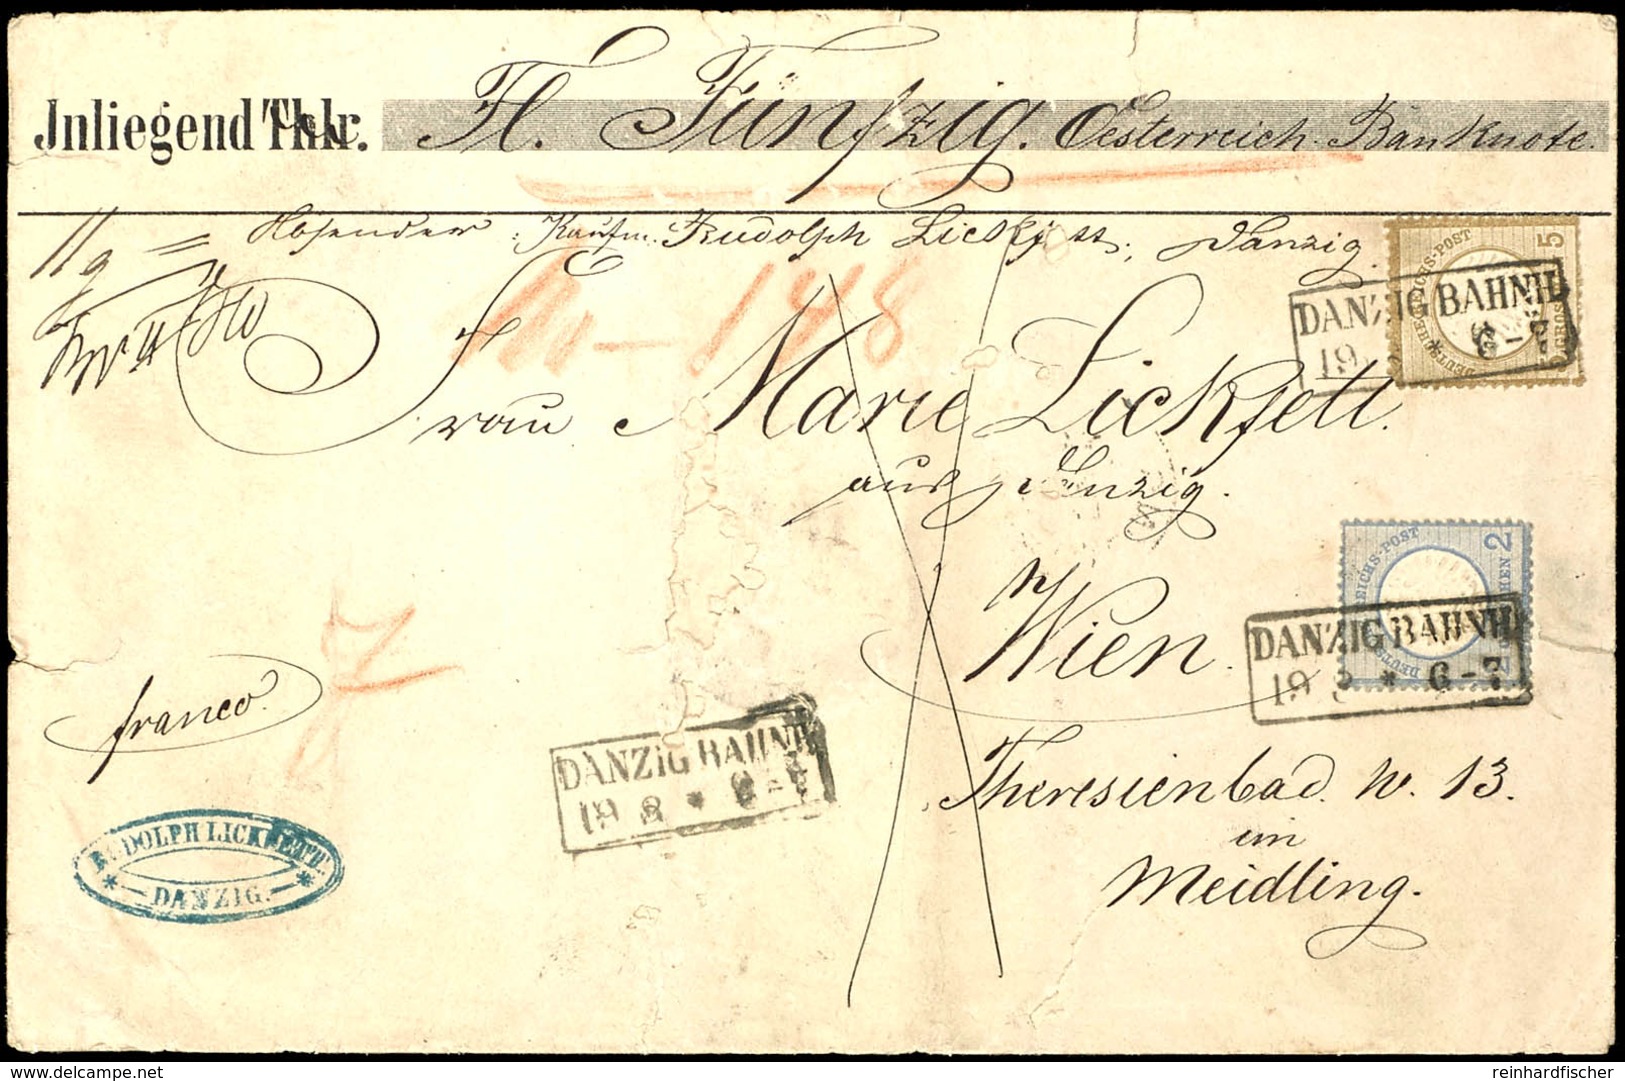 Inliegend Thlr. Fl. Fünfzig. Oesterreich. Banknote.
11 g = Absender: Kaufm. Rudolph Lickfett, Danzig.
No 148
Frau Marie Lickfett.
aus Danzig.
Wien.
Theresienbad. No. 13.
im
Meidling.
franco.
DEUTSCHE REICHS-POST
5 GROSCHEN
DANZIG BAHNH.
19 8 * 6-7
DEUTSCHE REICHS-POST
2 GROSCHEN
DANZIG BAHNH.
19 8 * 6-7
DANZIG BAHNH.
19 8 * 6-7
RUDOLPH LICKFETT.
* DANZIG. *
delcampe.net
reinhardfischer